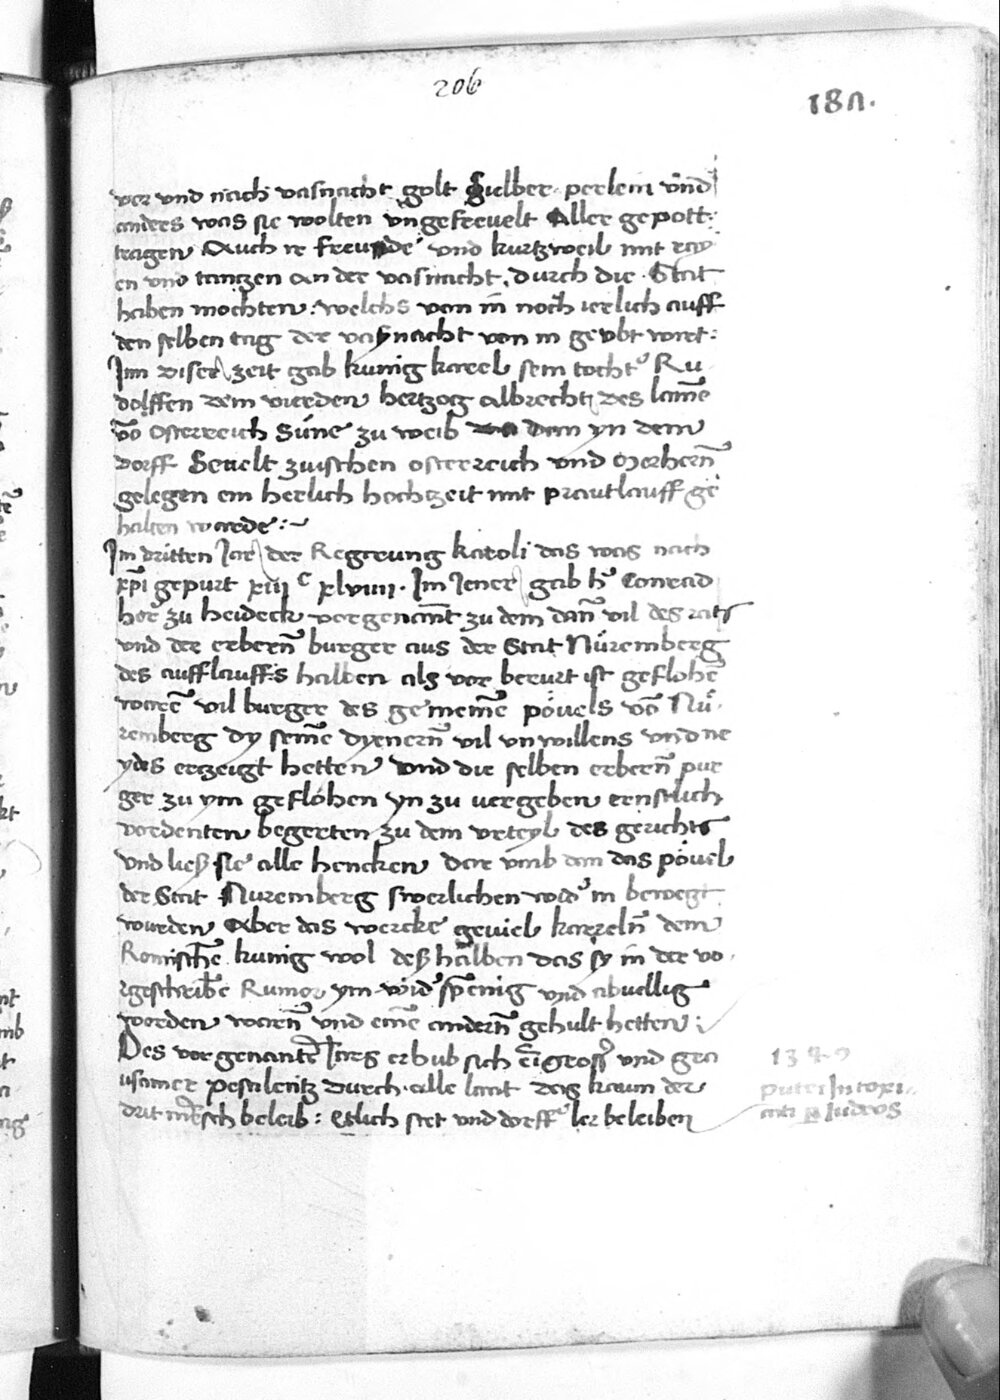 206
187.
vor und nach vasnacht golt Silber perlein und
anders was sie wolten ungefrevelt Aller gepott:
tragen Auch ir freunde und kurtzweil mit ray
en und tantzen an der vasnacht, durch die Stat
haben mochten: welchs von in noch ierlich auff
den selben tag der vaßnacht von in geübt wirt:
Inn diser zeit gab kunig karel sein tocht' Ru
dolffen dem vierden hertzog albrechts des lame
vō Osterreich Süne zu weib dem yn dem
dorff Sevelt zwischen osterreich und Merhern̄
gelegen ein herlich hochtzeit mit prautlauff ge
halten warde:~
Im dritten Jar der Regirung karoli das was nach
xpi gepurt xiii c xlviiii. Im Jener gab h' Conrad
her zu heideck vorgenant zu dem dan̄ vil des rats
und der erbern̄ burger aus der Stat Nüremberg
des aufflauffs halben als vor berurt ist geflohē
warē vil burger des gemeine pövels vō Nü
remberg dy seine dyenern̄ vil unwillens und ne
ydes erczeigt hetten und die selben erbern̄ pur
ger zu ym geflohen yn zu vergeben ernstlich
vordenten begerten zu dem urteyl des gerichts
und ließ sie alle hencken dar umb dan das pövel
der Stat Nuremberg swerlichen wid' in bewegt
wurden Aber das wercke geviel kareln̄ dem
Romische kunig wol deß halben das sy in der vo
rgeschribē Rumor ym wid'spenig und abvellig
worden warn̄ und eine andern̄ gehult hetten:
Des vorgenantē Jars erhub sich ei gross' und gra
usamer pestilentz durch alle lant das kaum der
drit mēsch beleib: Etlich stet und dorff' ler beleiben
1349
putei Intoxi
cati p Judeos